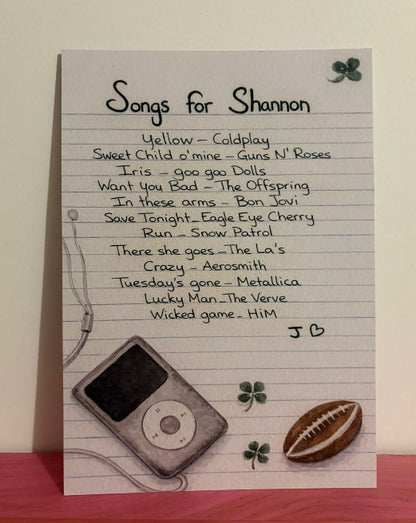 Songs for Shannon
Yellow – Coldplay
Sweet Child o'mine – Guns N' Roses
Iris – goo goo Dolls
Want You Bad – The Offspring
In these arms – Bon Jovi
Save Tonight – Eagle Eye Cherry
Run – Snow Patrol
There she goes – The La's
Crazy – Aerosmith
Tuesday's gone – Metallica
Lucky Man – The Verve
Wicked game – HiM
J ♡